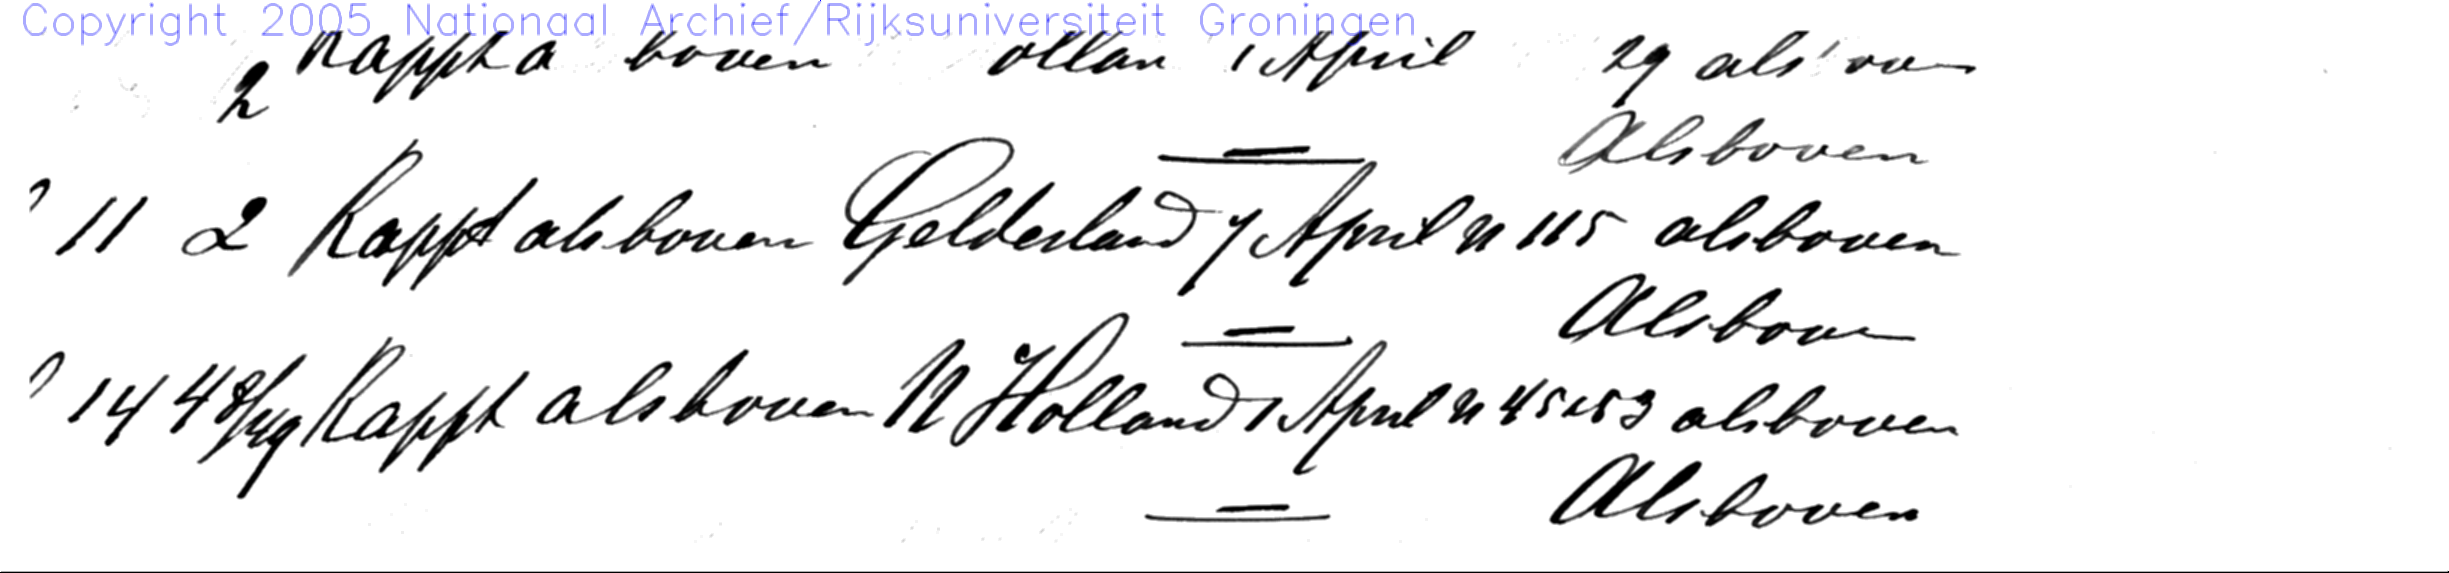 Copyright 2005 Nationaal Archief/Rijksuniversiteit Groningen
2 Rappt a boven ollan 1 April 29 als ove
Alsboven
11 2 Rappt alsboven Gelderland 7 April N 115 alsboven
Alsboven
14 4 8/49 Rappt alsboven N Holland 1 April N 45 alsboven
Alsboven